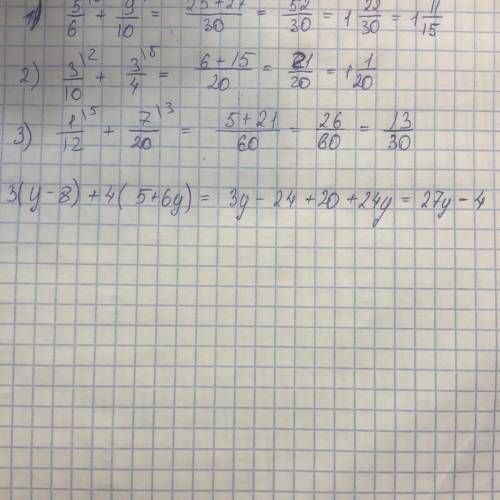 1) 5/6 + 9/10 = 25+27/30 = 52/30 = 1 22/30 = 1 11/15
2) 3\2/10 + 3\5/4 = 6+15/20 = 21/20 = 1 1/20
3) 1\5/12 + 7\3/20 = 5+21/60 = 26/60 = 13/30
3(y-8)+4(5+6y) = 3y-24+20+24y = 27y-4